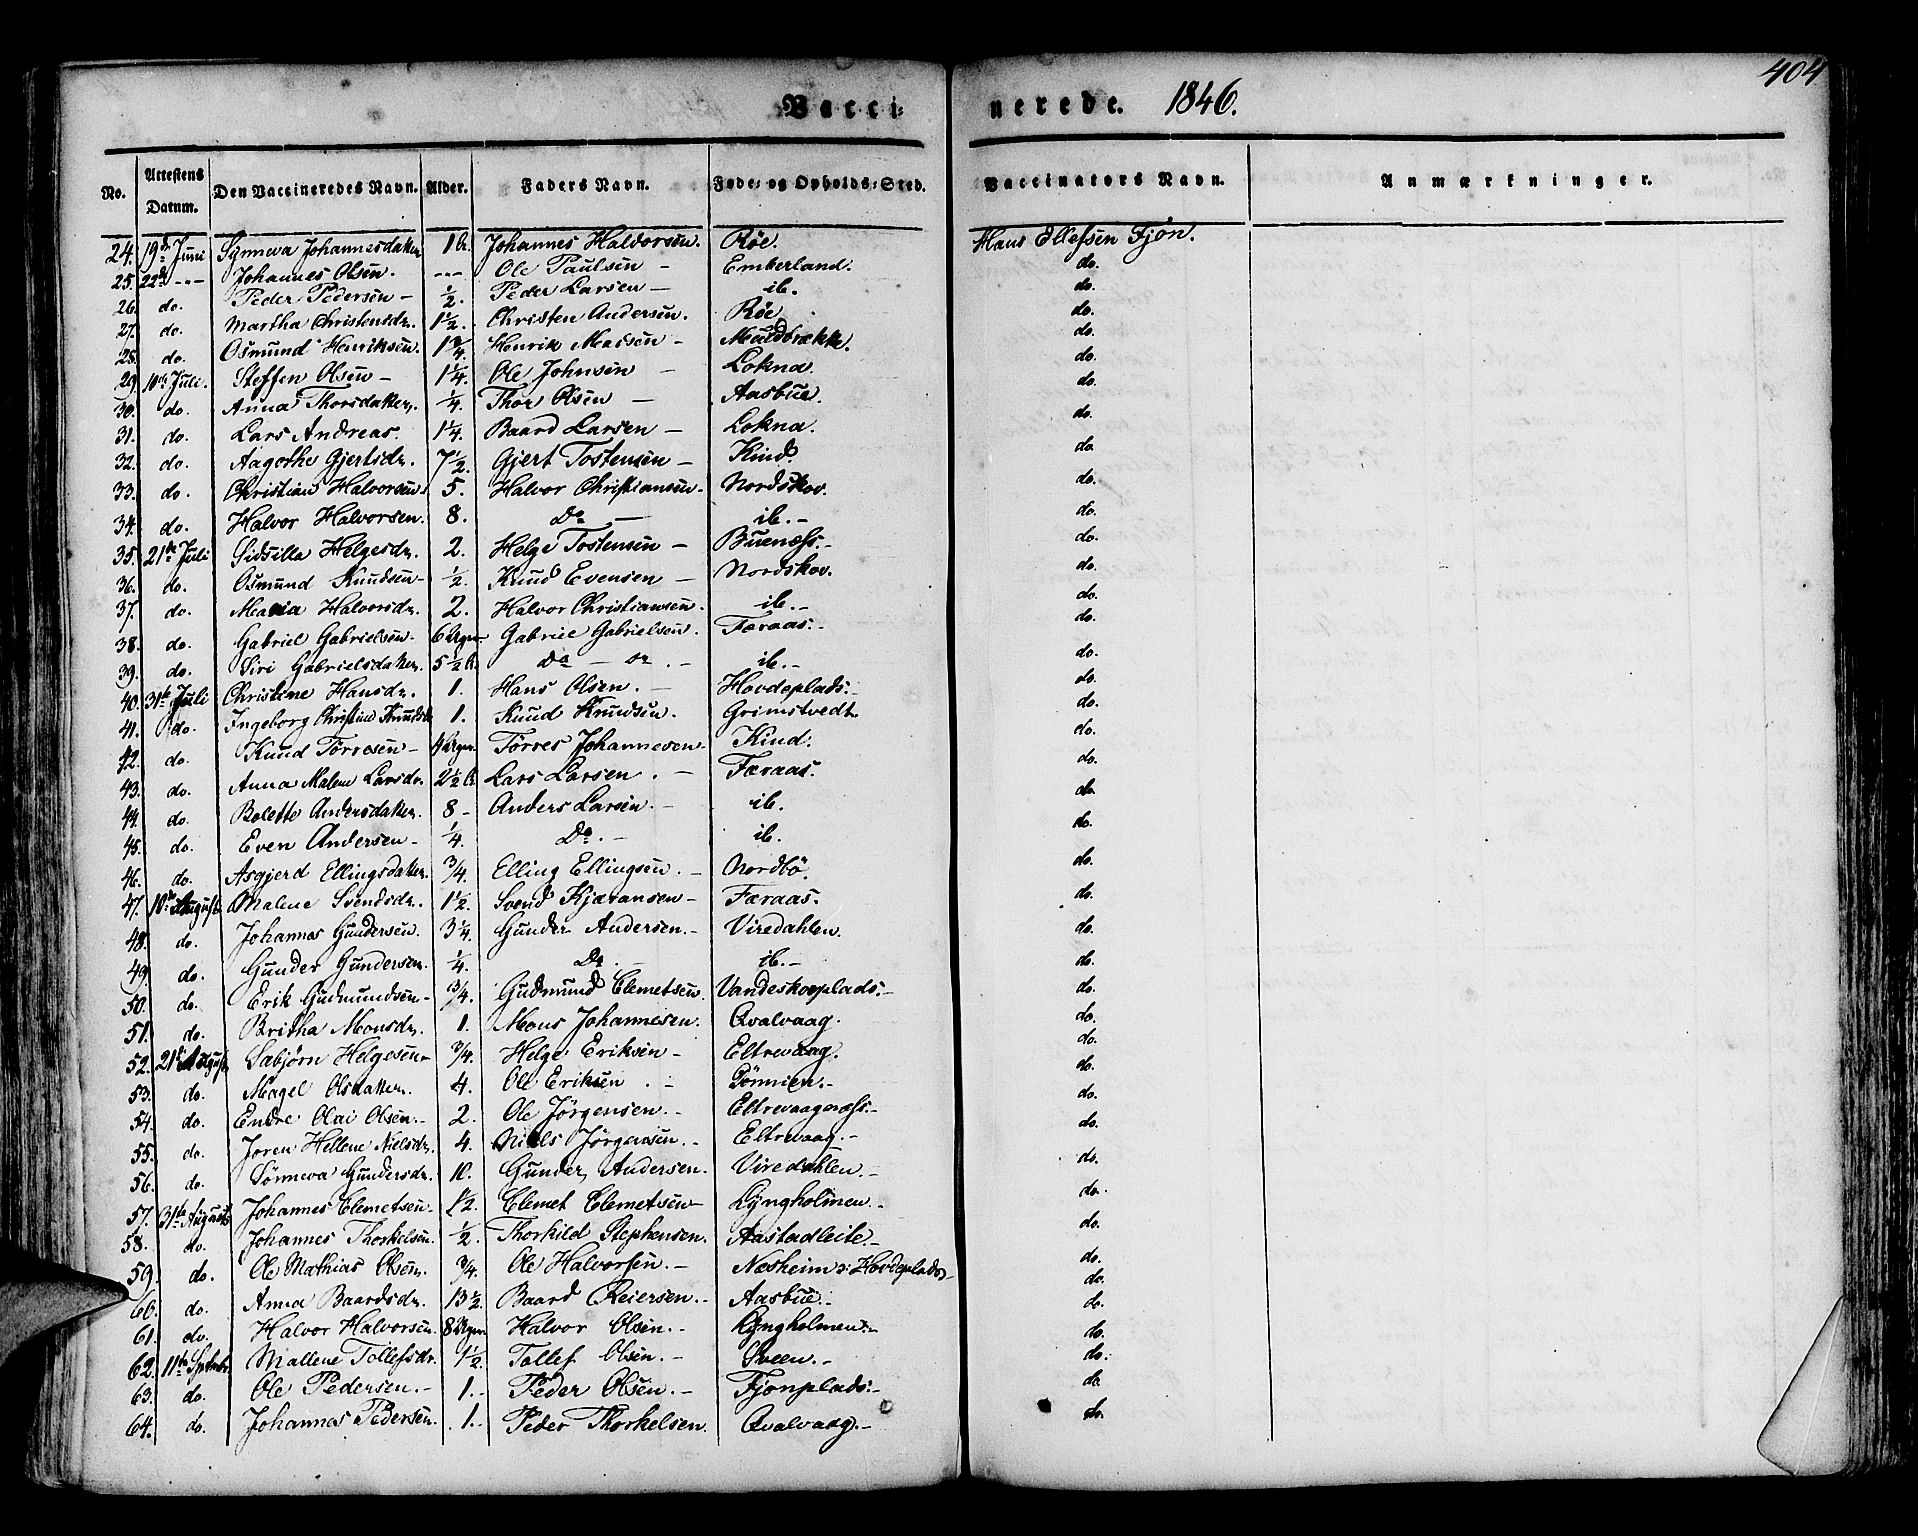 404
Vacci= nerede. 1846.
No. Attestens Datum. Den Vaccineredes Navn. Alder. Faders Navn. Føde- og Opholds-Sted. Vaccinators Navn. Anmærkninger.
24. 19de Juni Synneva Johannesdatter 1 Johannes Haldorsen. Røe. Hans Ellefsen Fjøn.
25. 22de --- Johannes Olsen. --- Ole Paulsen - Emberland. do.
26. do. Peder Pedersen - 1/2. Peder Larsen - ib. do.
27. do. Martha Christensdr. 1 1/2. Christen Andersen. Røe do.
28. do. Osmund Henriksen. 1 3/4. Henrik Massen - Muldbrække. do.
29. 10de Juli. Steffen Olsen - 1 1/4. Ole Johnsen - Lokna. do.
30. do. Anna Thorsdatter. 1/4. Thor Olsen - Aasbue. do.
31. do. Lars Andreas. 1 1/4. Baard Larsen - Lokna. do.
32. do. Aagothe Gjertsdr. 7 1/2. Gjert Tostensen - Kind. do.
33. do. Christian Halvorsen. 5. Halvor Christiansen. Nordskov. do.
34. do. Halvor Halvorsen. 8. Do - ib. - do.
35. 21de Juli Sidsilla Helgesdr. 2. Helge Tostensen - Buenæss. - do.
36. do. Osmund Knudsen - 1/2. Knud Evensen - Nordskov. do.
37. do. Maria Halvorsdr. 2. Halvor Christiansen. ib. - do.
38. do. Gabriel Gabrielsen. 6 Uger Gabriel Gabrielsen. Færaas. - do.
39. do. Siri Gabrielsdatter. 5 1/2 Do - ib. - do.
40. 31te Juli Christine Hansdr. 1. Hans Olsen. - Hovdeplads. - do.
41. do. Ingeborg Christine Knudsdr 1. Knud Knudsen. Grimstvedt do.
42. do. Knud Tørresen - 4 Uger. Tørres Johannesen Kind. do.
43. do. Anna Malene Larsdr. 2 1/2 Lars Larsen. - Færaas. do.
44. do. Bolette Andersdatter. 8 - Anders Larsen. - ib. do.
45. do. Even Andersen - 1/4. Do. - ib. do.
46. do. Asgjerd Ellingsdatter. 3/4. Elling Ellingsen. - Nordbö. do.
47. 10de August Malene Svendsdr. 1 1/2. Svend Kjætansen - Færaas. do.
48. do. Johannes Gundersen. 3 1/4. Gunder Andersen. - Viredahlen. do.
49. do. Gunder Gundersen. 1/4. Do. ib. - do.
50. do. Erik Gudmundsen - 1 3/4. Gudmund Clemetsen. Vandeskogplads. - do.
51. do. Britha Monsdr. 1. Mons Johannesen. Qvalvaag. do.
52. 21de August Sabjørn Helgesen - 3/4. Helge Eriksen - Eltrevaag. do.
53. do. Magel Olsdatter. 4. Ole Eriksen. - Tönnien. - do.
54. do. Endre Olai Olsen. - 2. Ole Jørgensen. - Eltrevaagnæss. - do.
55. do. Joren Hellene Nielsdr. 4. Niels Jørgensen. - Eltrevaag. - do.
56. do. Sønneva Gundersdr. 10. Gunder Andersen. Viredahlen - do.
57. 31te August Johannes Clemetsen. 1 1/2. Clemet Clemetsen - Lyngholmen. - do.
58. do. Johannes Thorkelsen. 1/2. Thorkild Stephensen. Aastadleite. - do.
59. do. Ole Mathias Olsen. 3/4. Ole Halvorsen. - Næsheim s: Hovdeplads - do.
60. do. Anna Baardsdr. 13 1/2. Baard Reiersen. - Aasbue. - do.
61. do. Halvor Halvorsen. 8 Uger Halvor Olsen. - Lyngholmen. - do.
62. 11te Septbr. Mallene Tollefsdr. 1 1/2. Tollef Olsen. - Sveen. - do.
63. do. Ole Pedersen. - 1. - Peder Olsen. - Fjonplads. - do.
64. do. Johannes Pedersen. 1. - Peder Thorkelsen. Qvalvaag. - do.